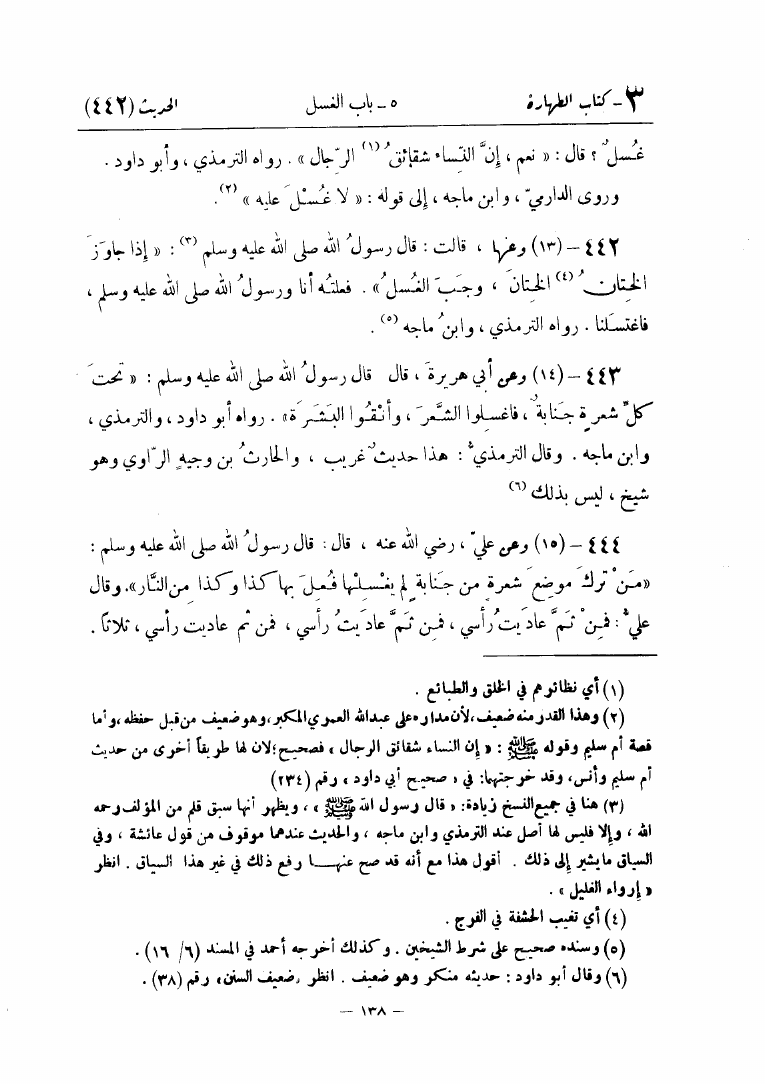 ٣ - كتاب الطهارة ٥ - باب الغسل الحديث (٤٤٢)
غُسلٌ؟ قال: « نعم ، إنَّ النِّساء شقائقُ (١) الرِّجال » . رواه الترمذي ، وأبو داود .
وروى الدارميّ ، وابن ماجه ، إلى قوله : « لا غُسْلَ عليه » (٢).
٤٤٢ - (١٣) وعنها ، قالت : قال رسولُ الله صلى الله عليه وسلم (٣) : « إذا جاوَزَ
الخِتانُ (٤) الخِتانَ ، وجَبَ الغُسلُ» . فعلتُه أنا ورسولُ الله صلى الله عليه وسلم ،
فاغتسَلنا . رواه الترمذي ، وابنُ ماجه (٥) .
٤٤٣ - (١٤) وعن أبي هريرةَ ، قال قال رسولُ الله صلى الله عليه وسلم : « تحتَ
كلِّ شعرةٍ جَنابةٌ ، فاغسلوا الشَّعرَ ، وأنْقُوا البَشَرَة» . رواه أبو داود ، والترمذي ،
وابن ماجه . وقال الترمذيُّ : هذا حديثٌ غريب ، والحارثُ بن وجيهٍ الرّاوي وهو
شيخ ، ليس بذلك (٦)
٤٤٤ - (١٥) وعن عليّ ، رضي الله عنه ، قال : قال رسولُ الله صلى الله عليه وسلم :
«مَنْ تركَ موضِعَ شعرةٍ من جَنابةٍ لم يغْسِلْها فُعِلَ بها كذا وكذا مِن النَّار». وقال
عليٌّ : فمِنْ ثَمَّ عادَيتُ رأسي ، فمِن ثَمَّ عادَيتُ رأسي ، فمن ثم عاديت رأسي ، ثلاثاً .
(١) أي نظائرهم في الخلق والطبائع .
(٢) وهذا القدر منه ضعيف، لأن مداره على عبدالله العمري المكبر، وهو ضعيف من قبل حفظه، وأما
قصة أم سليم وقوله ﷺ : « إن النساء شقائق الرجال » فصحيح؛ لان لها طريقاً أخرى من حديث
أم سليم وأنس، وقد خرجتهما: في « صحيح أبي داود » رقم (٢٣٤)
(٣) هنا في جميع النسخ زيادة: « قال رسول الله ﷺ » ، ويظهر أنها سبق قلم من المؤلف رحمه
الله ، وإلا فليس لها أصل عند الترمذي وابن ماجه ، والحديث عندهما موقوف من قول عائشة ، وفي
السياق ما يشير إلى ذلك . أقول هذا مع أنه قد صح عنها رفع ذلك في غير هذا السياق . انظر
« إرواء الغليل » .
(٤) أي تغيب الحشفة في الفرج .
(٥) وسنده صحيح على شرط الشيخين . وكذلك أخرجه أحمد في المسند (٦/ ١٦) .
(٦) وقال أبو داود : حديثه منكر وهو ضعيف . انظر «ضعيف السنن» رقم (٣٨) .
— ١٣٨ —